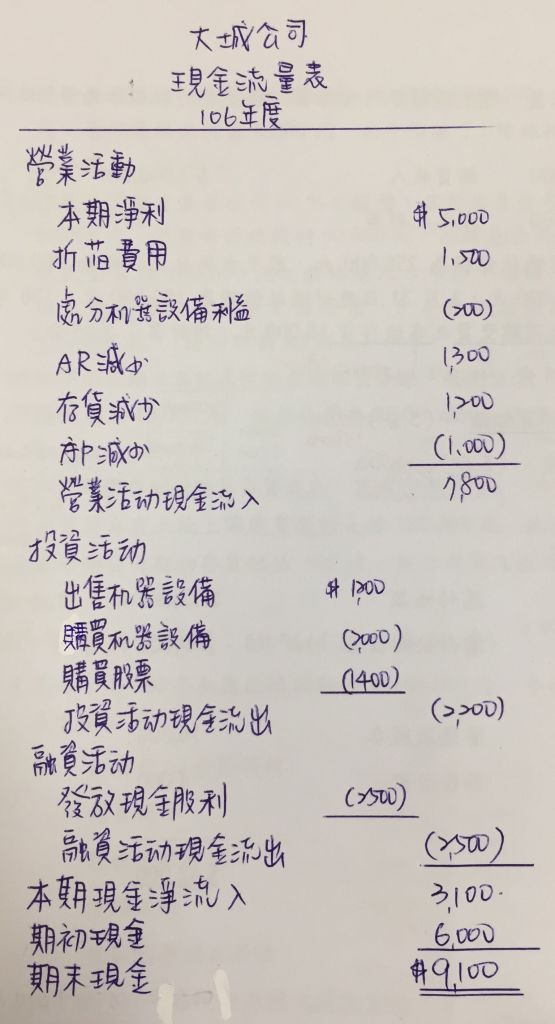 大城公司
現金流量表
106年度
營業活動
本期淨利 $5,000
折舊費用 1,500
處分机器設備利益 (200)
AR減少 1,300
存貨減少 1,200
AP減少 (1,000)
營業活动現金流入 7,800
投資活动
出售机器設備 $1,200
購買机器設備 (2,000)
購買股票 (1400)
投資活动現金流出 (2,200)
融資活动
發放現金股利 (2500)
融資活动現金流出 (2,500)
本期現金淨流入 3,100
期初現金 6,000
期末現金 $9,100